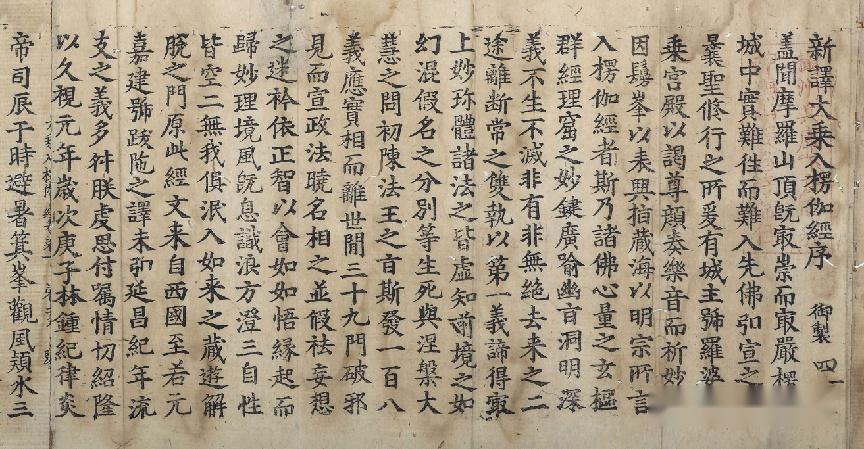 新譯大乘入楞伽經序 御製 四一
蓋聞摩羅山頂旣㝡崇而㝡嚴楞
城中實難往而難入先佛弘宣之
曩聖修行之所爰有城主號羅婆
乘宮殿以謁尊顔奏樂音而祈妙
因鬘峯以表興指藏海以明宗所言
入楞伽經者斯乃諸佛心量之玄樞
群經理窟之妙鍵廣喻幽旨洞明深
義不生不滅非有非無絶去来之二
途離斷常之雙執以第一義諦得㝡
上妙珎體諸法之皆虛知前境之如
幻混假名之分別等生死與涅槃大
慧之問初陳法王之旨斯發一百八
義應實相而離世間三十九門破邪
見而宣政法曉名相之並假袪妄想
之迷衿依正智以會如如悟緣起而
歸妙理境風旣息識浪方澄三自性
皆空二無我俱泯入如来之藏遊解
脫之門原此經文来自西國至若元
嘉建號跋陁之譯未弘延昌紀年流
支之義多舛朕虔思付囑情切紹隆
以久視元年歲次庚子林鍾紀律炎
帝司辰于時避暑箕峯觀風穎水三